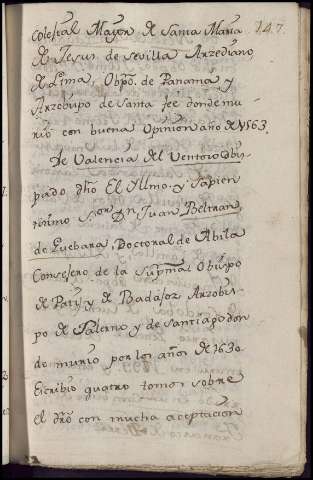 147.
Colegial Mayor de Santa Maria
de Jesus de Sevilla Arzediano
de Lima, Obpo. de Panama y
Arzobispo de Santa feé donde mu-
rió con buena Opinion año de 1663.
De Valencia del Ventoso Obis-
pado dho El Illmo. y Sapien
tisimo Sor. Dn. Juan Beltran
de Guebara, Doctoral de Abila
Consejero de la Supma. Obispo
de Pati y de Badajoz Arzobis-
po de Salerno y de Santiago don
de murio por los años de 1630
Escribio quatro tomos sobre
el dro con mucha aceptacion